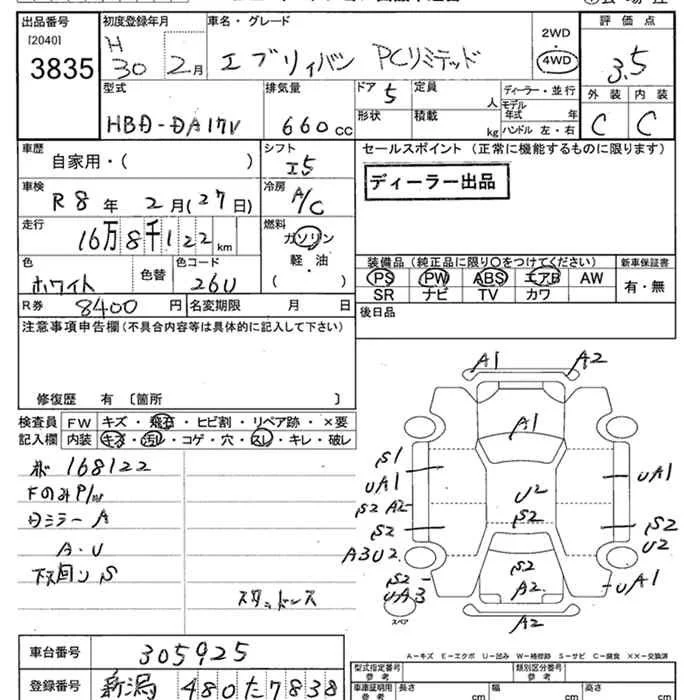 出品番号 初度登録年月 車名・グレード 評価点
[2040] H
3835 30 2月 エブリィバン PCリミテッド 2WD 4WD 3.5
型式 排気量 ドア 5 定員 人 ディーラー・並行 外装 内装
HBD-DA17V 660cc 形状 積載 kg モデル年式 年 C C
ハンドル 左・右
車歴 シフト セールスポイント (正常に機能するものに限ります)
自家用・( ) I5
ディーラー出品
車検 冷房
R8年 2月(27日) A/C
走行 燃料
16万8千122km ガソリン
軽・油
( )
色 色替 色コード 装備品 (純正品に限り○をつけてください) 新車保証書
ホワイト 26U PS PW ABS エアB AW 有・無
SR ナビ TV カワ
R券 8400円 名変期限 月 日 後日品
注意事項申告欄(不具合内容等は具体的に記入して下さい)
修復歴 有 〔箇所 〕
検査員 FW キズ・飛石・ヒビ割・リペア跡・×要
記入欄 内装 キズ・汚レ・コゲ・穴・スレ・キレ・破レ
168122
FのみP/W
ミラー A
A・U
下回り S
スタッドレス
A1 A2
A1
S1
UA1 UA1
S2 A2 U2
S2 S2 S2
A3U2 U2
S2
S2 A2 UA1
UA3
スペア
A2
A-キズ E-エクボ U-凹ミ W-補修跡 S-サビ C-腐食 XX-交換済
車台番号 305925
型式指定番号 参考 類別区分番号 参考
登録番号 新潟 480 た 7838
車庫証明用 参考 長さ cm 幅 cm 高さ cm